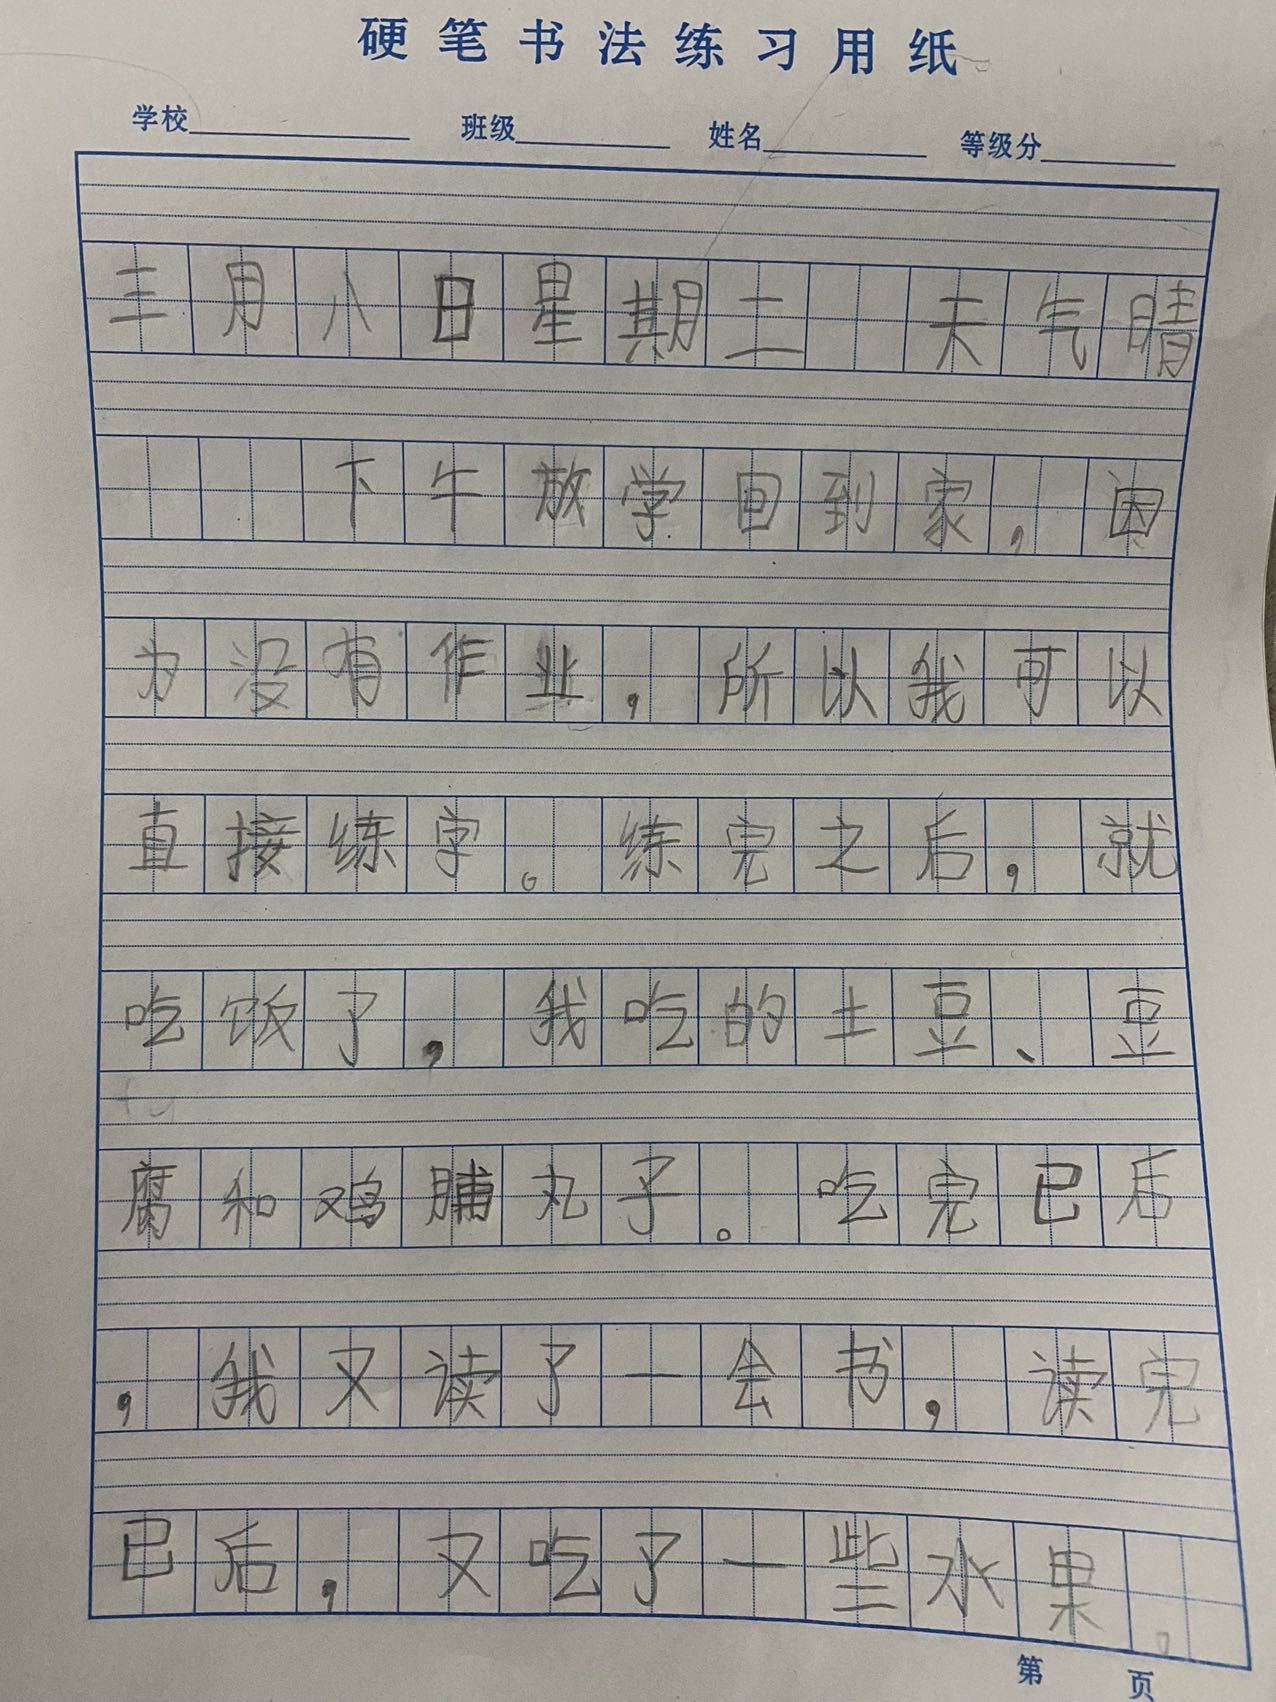 硬笔书法练习用纸
学校 班级 姓名 等级分
三月八日星期二 天气晴
下午放学回到家，因
为没有作业，所以我可以
直接练字。练完之后，就
吃饭了，我吃的土豆、豆
腐和鸡脯丸子。吃完已后
，我又读了一会书，读完
已后，又吃了一些水果。
第 页